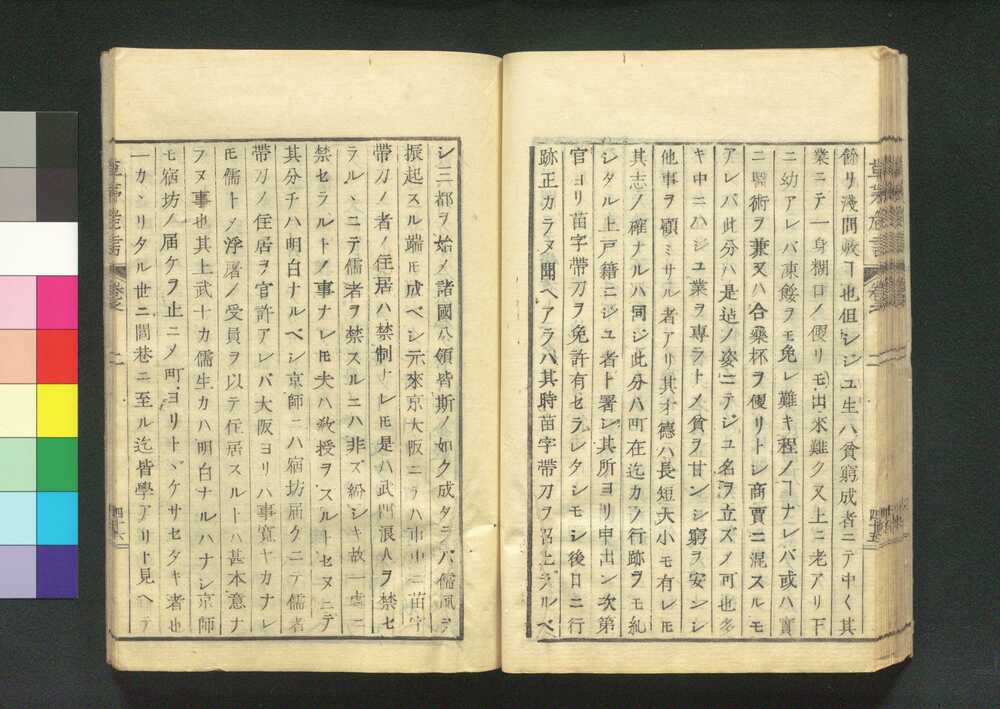 餘リ淺間敷ヿ也但シジユ生ハ貧窮成者ニテ中〱其
業ニテ一身糊口ノ便リモ出来難ク又上ニ老アリ下
ニ幼アレバ凍餒ヲモ免レ難キ程ノヿナレバ或ハ賣
ニ醫術ヲ兼又ハ合藥杯ヲ便リトシ商賈ニ混スルモ
アレバ此分ハ是迠ノ姿ニテジユ名ヲ立ズメ可也
キ中ニハジユ業ヲ専ラトメ貧ヲ甘ンシ窮ヲ安ンシ
他事ヲ顧ミサル者アリ其才德ハ長短大小モ有レ𪜈
其志ノ確ナルハ同ジ此分ハ町在迄カノ行跡ヲモ糺
シタル上戸籍ニジユ者ト署シ其所ヨリ申出シ次第
官ヨリ苗字帶刀ヲ免許有セラレタシモシ後日ニ行
跡正カラヌ聞ヘアラハ其時苗字帶刀ヲ召上ラルベ
シ三都ヲ始メ諸國公領皆斯ノ如ク成タラバ儒風ヲ
振起スル端𪜈成ベシ示來京大阪ニテハ市中ニ苗字
帶刀ノ者ノ住居ハ禁制ナレ𪜈是ハ武門浪人ヲ禁セ
ラルヽニテ儒者ヲ禁スルニハ非ズ紛シキ故一䖏ニ
禁セラルトノ事ナレ𪜈夫ハ敎授ヲスルトセヌニテ
其分チハ明白ナルベシ京師ニハ宿坊届クニテ儒者
帶刀ノ住居ヲ官許アレバ大阪ヨリハ事寬ヤカナレ
𪜈儒トメ浮屠ノ受員ヲ以テ住居スルトハ甚本意ナ
フヌ事也其上武士カ儒生カハ明白ナルハナシ京師
モ宿坊ノ届ケヲ止ニメ町ヨリトヾケサセタキ者也
一カヽリタル世ニ閭巷ニ至ル迄皆學アリト見ヘテ